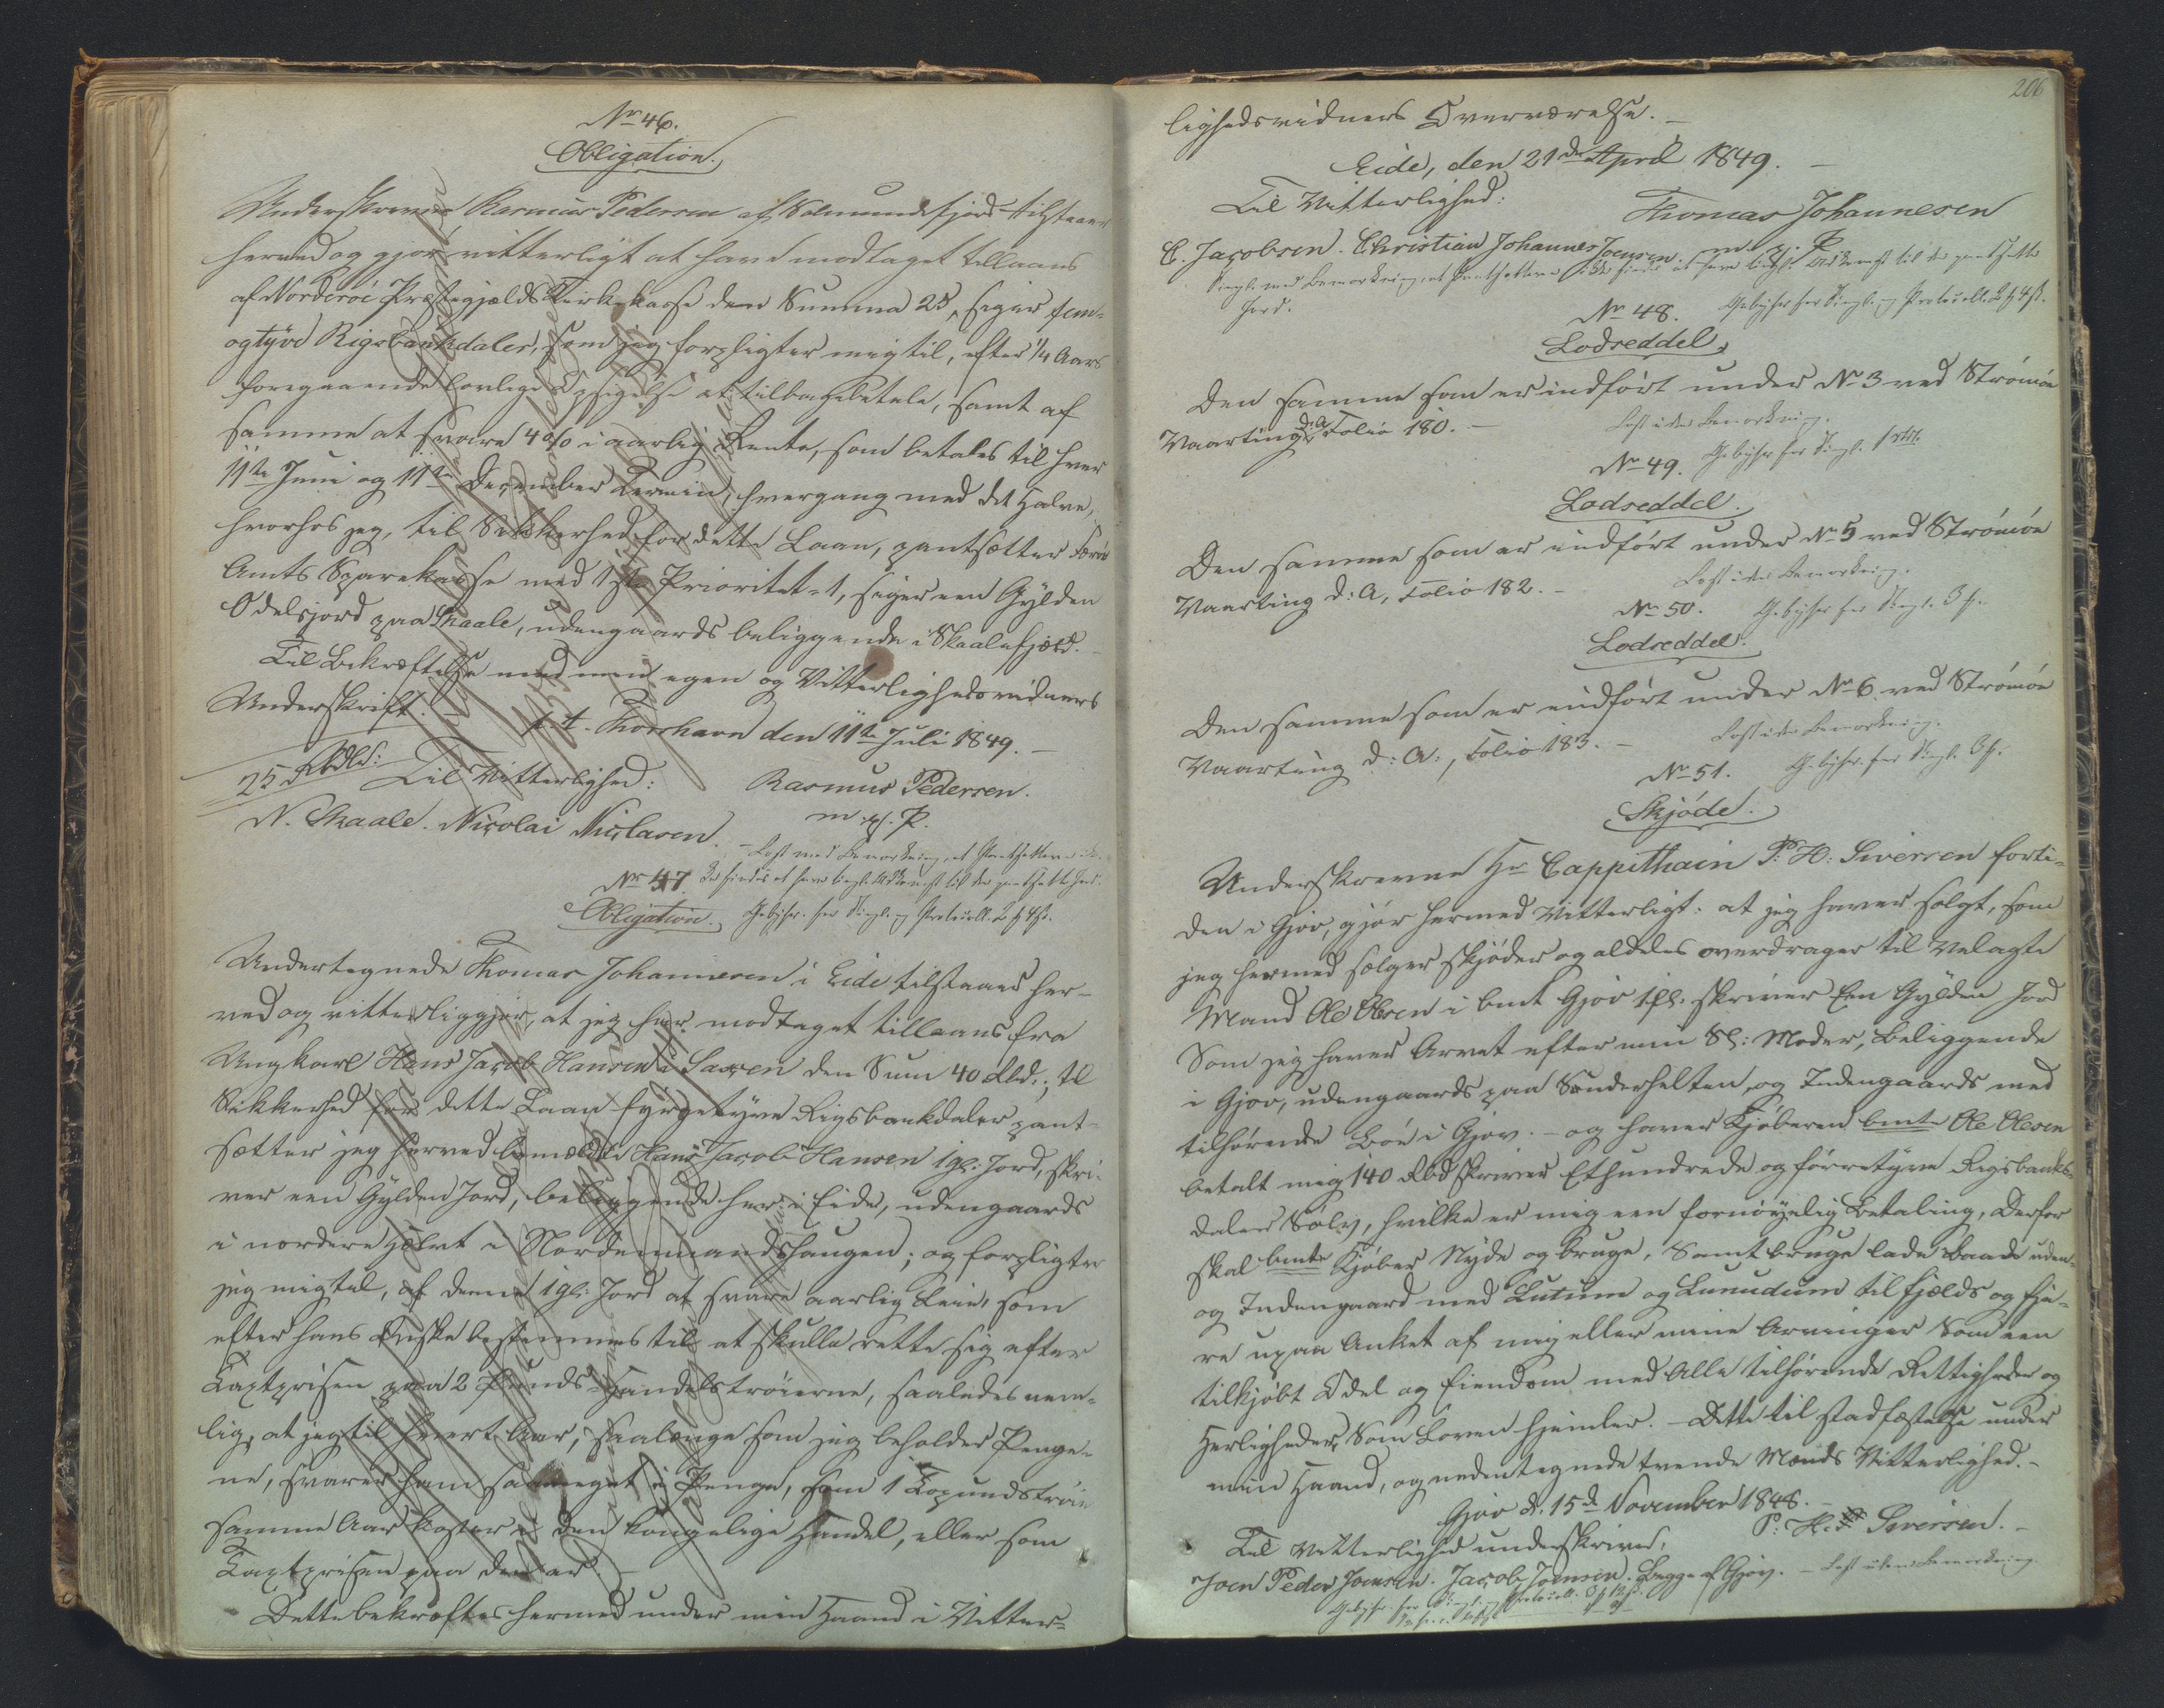 No 46.
Obligation.
Underskrevne Rasmus Pedersen af Solmundefjord tilstaaer
herved og gjør vitterligt at have modtaget tillaans
af Norderöe Præstegjælds Kirkekasse den Summa 25, siger fem-
ogtyve Rigsbankdaler, som jeg forpligter mig til, efter 1/4 Aars
foregaaende lovlige Opsigelse at tilbagebetale, samt af
samme at svare 4 o/o i aarlig Rente, som betales til hver
11te Juni og 11te December Termin, hvergang med det Halve,
hvorhos jeg, til Sikkerhed for dette Laan, pantsætter Færø
Amts Sparekasse med 1ste Prioritet 1, siger een Gylden
Odelsjord paa Skaale, udengaards beliggende i Skaalefjeld.
Til Bekræftelse med min egen og Vitterlighedsvidners
Underskrift.
p.t. Thorshavn den 11te Juli 1849.
25 Rbdlr: Til Vitterlighed: Rasmus Pedersen.
N. Skaale. Nicolai Niclasen. m. p. P.
- Læst med Bemærkning, at Pantsætteren ik-
No 47. ke findes at have tingl. Adkomst til den pantsatte Jord.
Obligation. Gebyhr for Tingl. og Protocoll. 2 ƒ 4 ß.
Undertegnede Thomas Johannesen i Eide tilstaaer her-
ved og vitterliggjør, at jeg har modtaget tillaans fra
Ungkarl Hans Jacob Hansen i Saxen den Sum 40 Rbd.; til
Sikkerhed for dette Laan fyrgetyve Rigsbankdaler pant-
sætter jeg herved bemældte Hans Jacob Hansen 1 gl. Jord, skri-
ver een Gylden Jord, beliggende her i Eide, udengaards
i nordere Halvt i Nordenmandshaugen; og forpligter
jeg mig til, af denne 1 gl. Jord at svare aarlig Leie, som
efter hans Ønske bestemmes til at skulle rette sig efter
Taxtprisen paa 2 Punds Handelstrøierne, saaledes nem-
lig, at jeg til hvert Aar, saalænge som jeg beholder Penge-
ne, svarer ham saameget i Penge, som 1 Topundstrøie
samme Aar koster i den kongelige Handel, eller som
Taxtprisen paa den er.
Dette bekræftes hermed under min Haand i Vitter-
206
lighedsvidners Overværelse.
Eide, den 21de April 1849.
Til Vitterlighed: Thomas Johannesen
E. Jacobsen. Christian Johannes Joensen. m. p. P.
Tingl. med Bemærkning, at Pantsætteren ikke findes at have tingl. Adkomst til den pantsatte
Jord.
No 48. Gebyhr for Tingl. og Protocoll. 2 ƒ 4 ß.
Lodseddel.
Den samme som er indført under No 3 ved Strömöe
Vaarting d. A. Folio 180.
Læst uden Bemærkning.
No 49. Gebyhr for Tingl. 1 rbd.
Lodseddel.
Den samme som er indført under No 5 ved Strömöe
Vaarting d: A, Folio 182.
Læst uden Bemærkning.
No 50. Gebyhr for Tingl. 3 ƒ.
Lodseddel.
Den samme som er indført under No 6 ved Strömöe
Vaarting d: A:, Folio 183.
Læst uden Bemærkning.
No 51. Gebyhr for Tingl. 3 ƒ.
Skjöde.
Underskrevne Hr Cappithain P: H: Siversen forti-
den i Gjov, gjør hermed Vitterligt: at jeg haver solgt, som
jeg hermed sælger skjøder og aldeles overdrager til Velagte
Mand Ole Olesen i bmt Gjov 1 gl. skriver Een Gylden Jord
Som jeg haver Arvet efter min Sl: Moder, beliggende
i Gjov, udengaards paa Sønderhelten, og Indengaards med
tilhørende Bøe i Gjov. - og haver Kjøberen bmte Ole Olesen
betalt mig 140 Rbd skriver Ethundrede og førretyve Rigsbank-
daler Sølv, hvilke er mig een fornøyelig Betaling, Derfor
skal bmte Kjøber Nyde og bruge, Samt bruge lade baade uden-
og Indengaard med Lutum og Lunudum til fjelds og fjæ-
re upaa Anket af mig eller mine Arvinger Som een
tilkjøbt Odel og Eiendom med Alle tilhørende Rettigheder og
Herligheder, Som Loven hjemler. - Dette til Stadfæstelse under
min Haand, og nedentegnede tvende Mænds Vitterlighed. -
Gjov d. 15d November 1848.
Til Vitterlighed underskriver, P: H: Siversen. -
Joen Peder Joensen. Jacob Joensen. Begge af Gjov. - Læst uden Bemærkning.
Gebyhr for Tingl. og Protocoll.